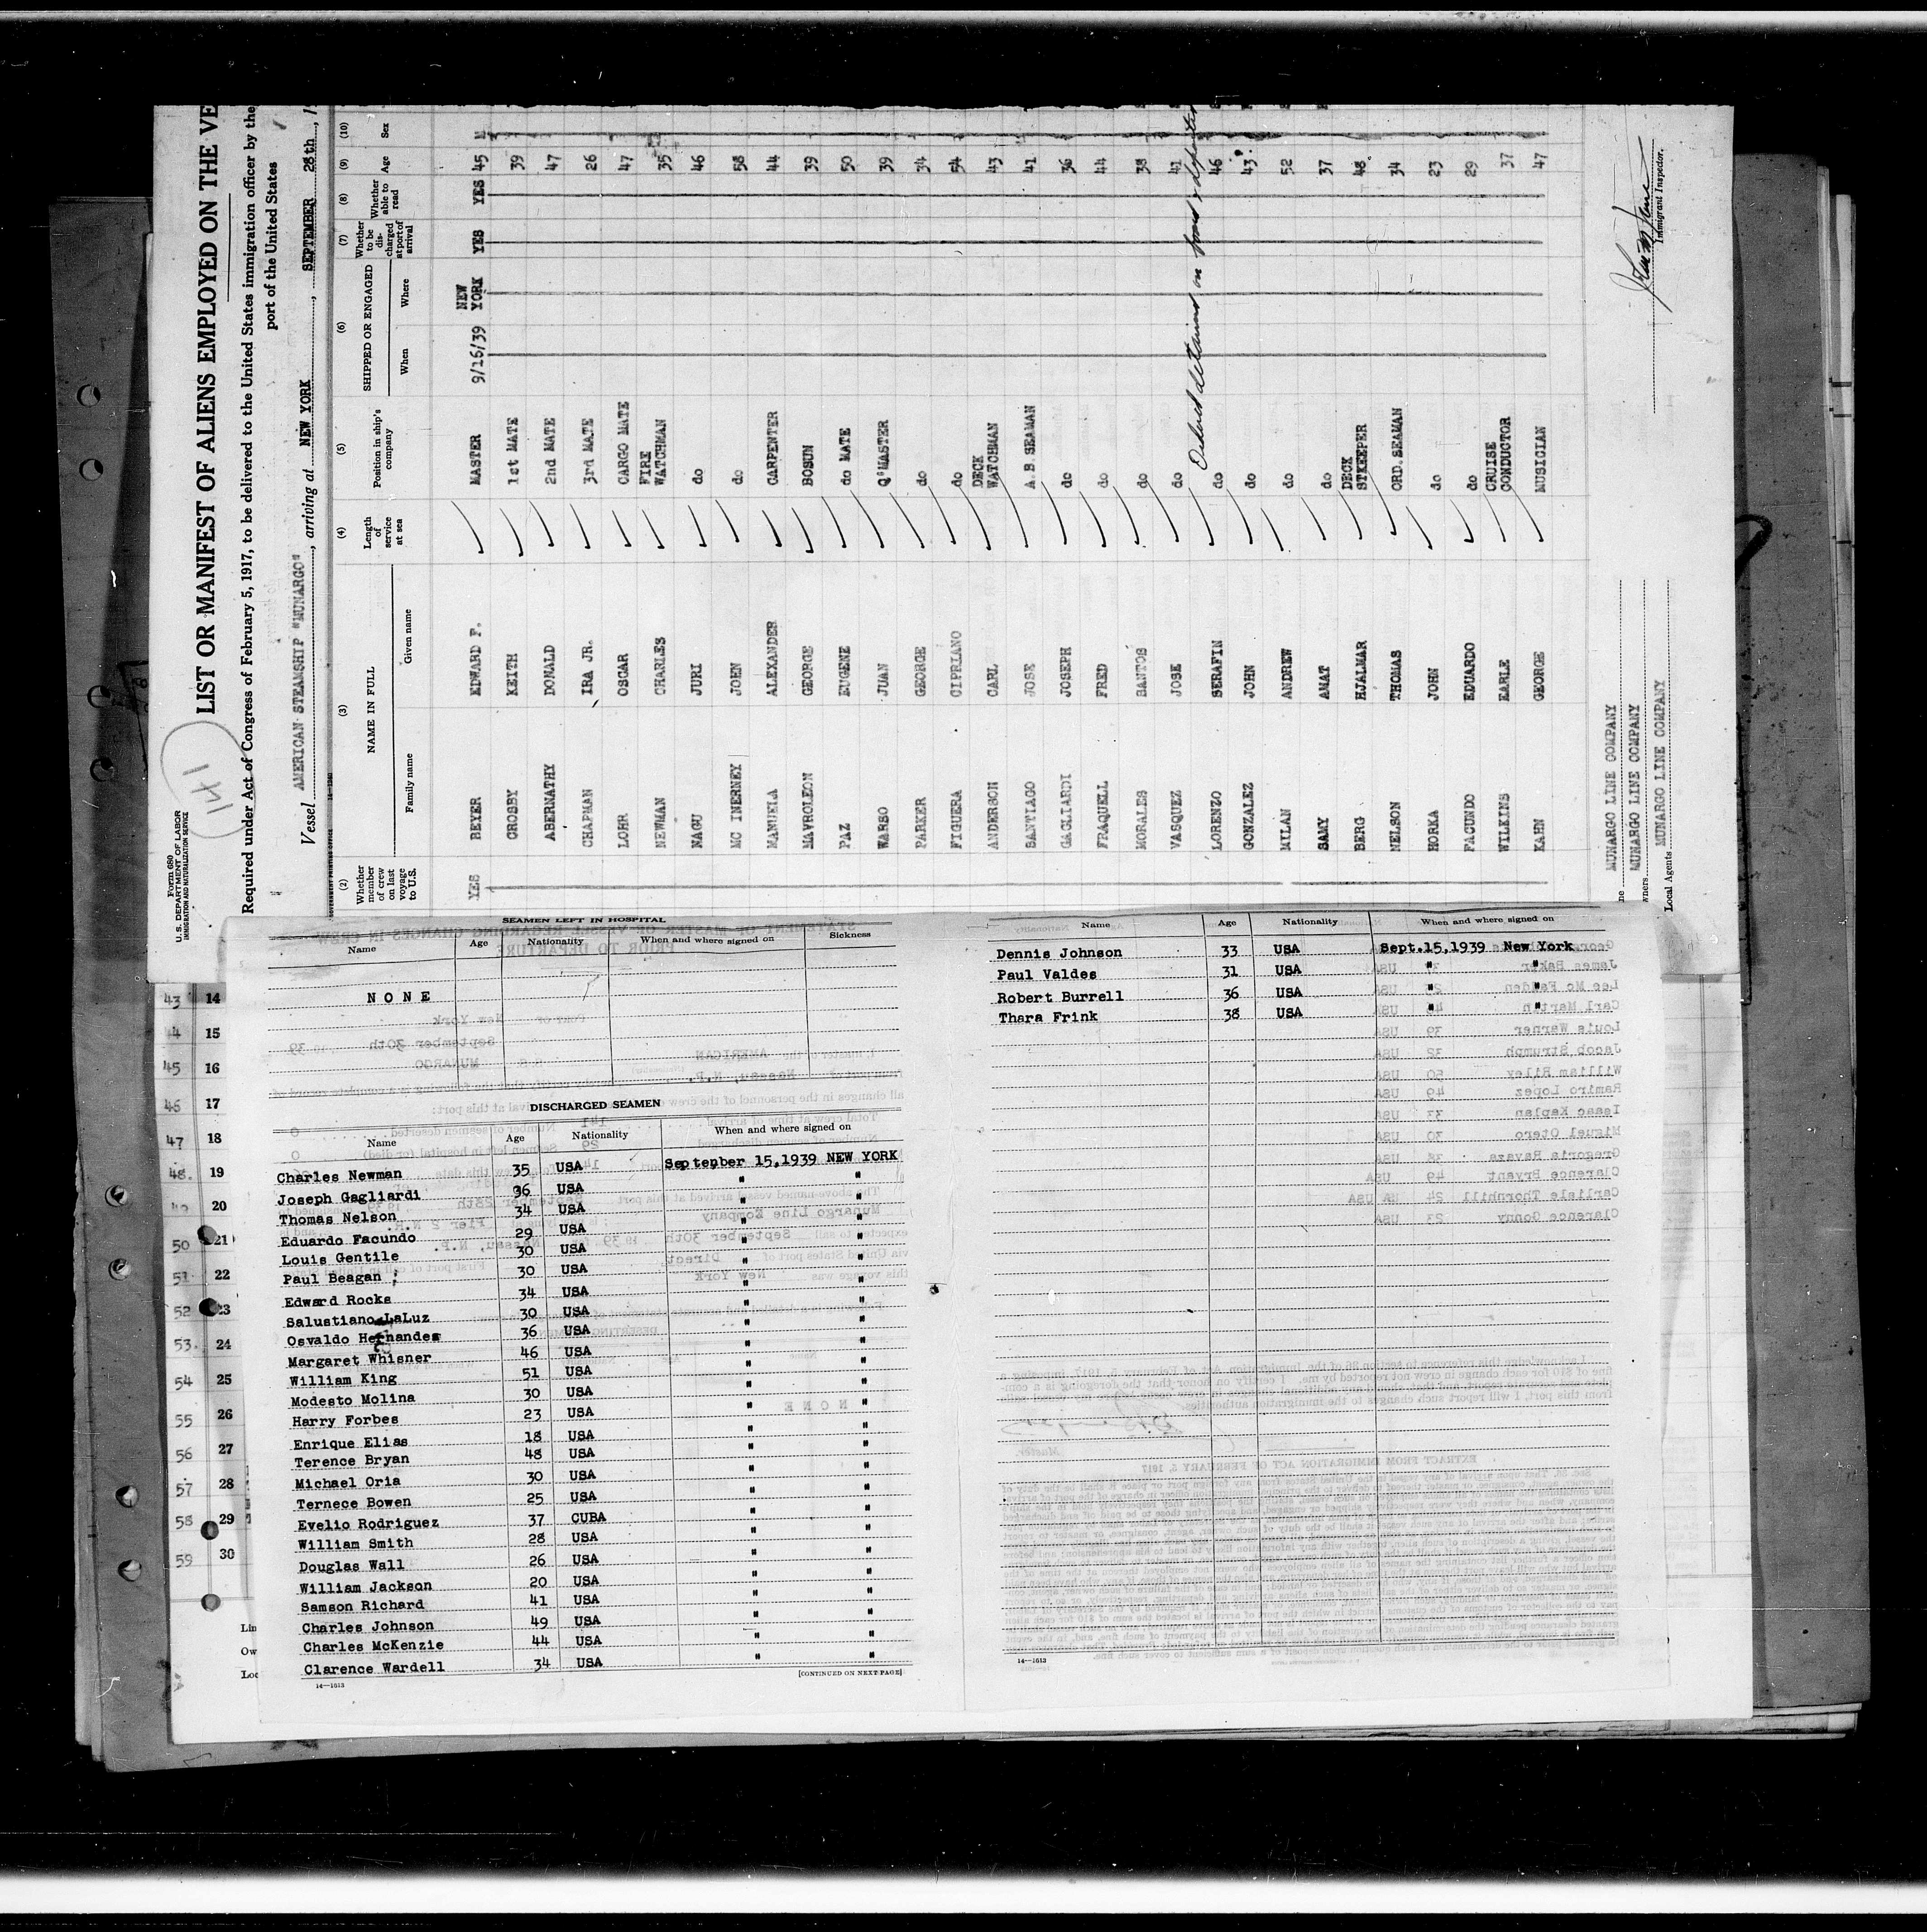 Form 680
U. S. DEPARTMENT OF LABOR
IMMIGRATION AND NATURALIZATION SERVICE
141
LIST OR MANIFEST OF ALIENS EMPLOYED ON THE VE
Required under Act of Congress of February 5, 1917, to be delivered to the United States immigration officer by the
port of the United States
Vessel AMERICAN STEAMSHIP "MUNARGO", arriving at NEW YORK, SEPTEMBER 28th, 1
(2) (3) (4) (5) (6) (7) (8) (9) (10)
Whether member of crew on last voyage to U.S. NAME IN FULL Family name Given name Length of service at sea Position in ship's company SHIPPED OR ENGAGED When Where Whether to be discharged at port of arrival Whether able to read Age Sex
YES BEYER EDWARD F. MASTER 9/16/39 NEW YORK YES YES 45 M
CROSBY KEITH 1st MATE 39
ABERNATHY DONALD 2nd MATE 47
CHAPMAN IRA JR. 3rd MATE 26
LOHR OSCAR CARGO MATE 47
NEWMAN CHARLES FIRE WATCHMAN 35
NAGU JURI do 46
MC INERNEY JOHN do 58
MANUELA ALEXANDER CARPENTER 44
MAVROLEON GEORGE BOSUN 39
PAZ EUGENE do MATE 50
WARBO JUAN Q'MASTER 39
PARKER GEORGE do 34
FIGUERA CIPRIANO do 54
ANDERSON CARL DECK WATCHMAN 43
SANTIAGO JOSE A.B. SEAMAN 41
GAGLIARDI JOSEPH do 36
FRAQUELL FRED do 44
MORALES SANTOS do 38
VASQUEZ JOSE do 41
Ordered detained on board & deported
LORENZO SERAFIN do 46
GONZALEZ JOHN do 43
MILAN ANDREW do 52
SAMY AMAT do 37
BERG HJALMAR DECK STKEEPER 48
NELSON THOMAS ORD. SEAMAN 34
HORKA JOHN do 23
FACUNDO EDUARDO do 29
WILKINS EARLE CRUISE CONDUCTOR 37
KAHN GEORGE MUSICIAN 47
ne MUNARGO LINE COMPANY
wners MUNARGO LINE COMPANY
Local Agents MUNARGO LINE COMPANY
Immigrant Inspector.
43 14
44 15
45 16
46 17
47 18
48 19
20
50 21
51 22
52 23
53 24
54 25
55 26
56 27
57 28
58 29
59 30
Lin
Ow
Loc
SEAMEN LEFT IN HOSPITAL
Name Age Nationality When and where signed on Sickness
NONE
DISCHARGED SEAMEN
Name Age Nationality When and where signed on
Charles Newman 35 USA September 15,1939 NEW YORK
Joseph Gagliardi 36 USA " "
Thomas Nelson 34 USA " "
Eduardo Facundo 29 USA " "
Louis Gentile 30 USA " "
Paul Beagan 30 USA " "
Edward Rocks 34 USA " "
Salustiano LaLuz 30 USA " "
Osvaldo Hernandes 36 USA " "
Margaret Whisner 46 USA " "
William King 51 USA " "
Modesto Molina 30 USA " "
Harry Forbes 23 USA " "
Enrique Elias 18 USA " "
Terence Bryan 48 USA " "
Michael Oria 30 USA " "
Ternece Bowen 25 USA " "
Evelio Rodriguez 37 CUBA " "
William Smith 28 USA " "
Douglas Wall 26 USA " "
William Jackson 20 USA " "
Samson Richard 41 USA " "
Charles Johnson 49 USA " "
Charles McKenzie 44 USA " "
Clarence Wardell 34 USA " "
[CONTINUED ON NEXT PAGE]
14—1613
Name Age Nationality When and where signed on
Dennis Johnson 33 USA Sept.15,1939 New York
Paul Valdes 31 USA " "
Robert Burrell 36 USA " "
Thara Frink 38 USA " "
14—1613